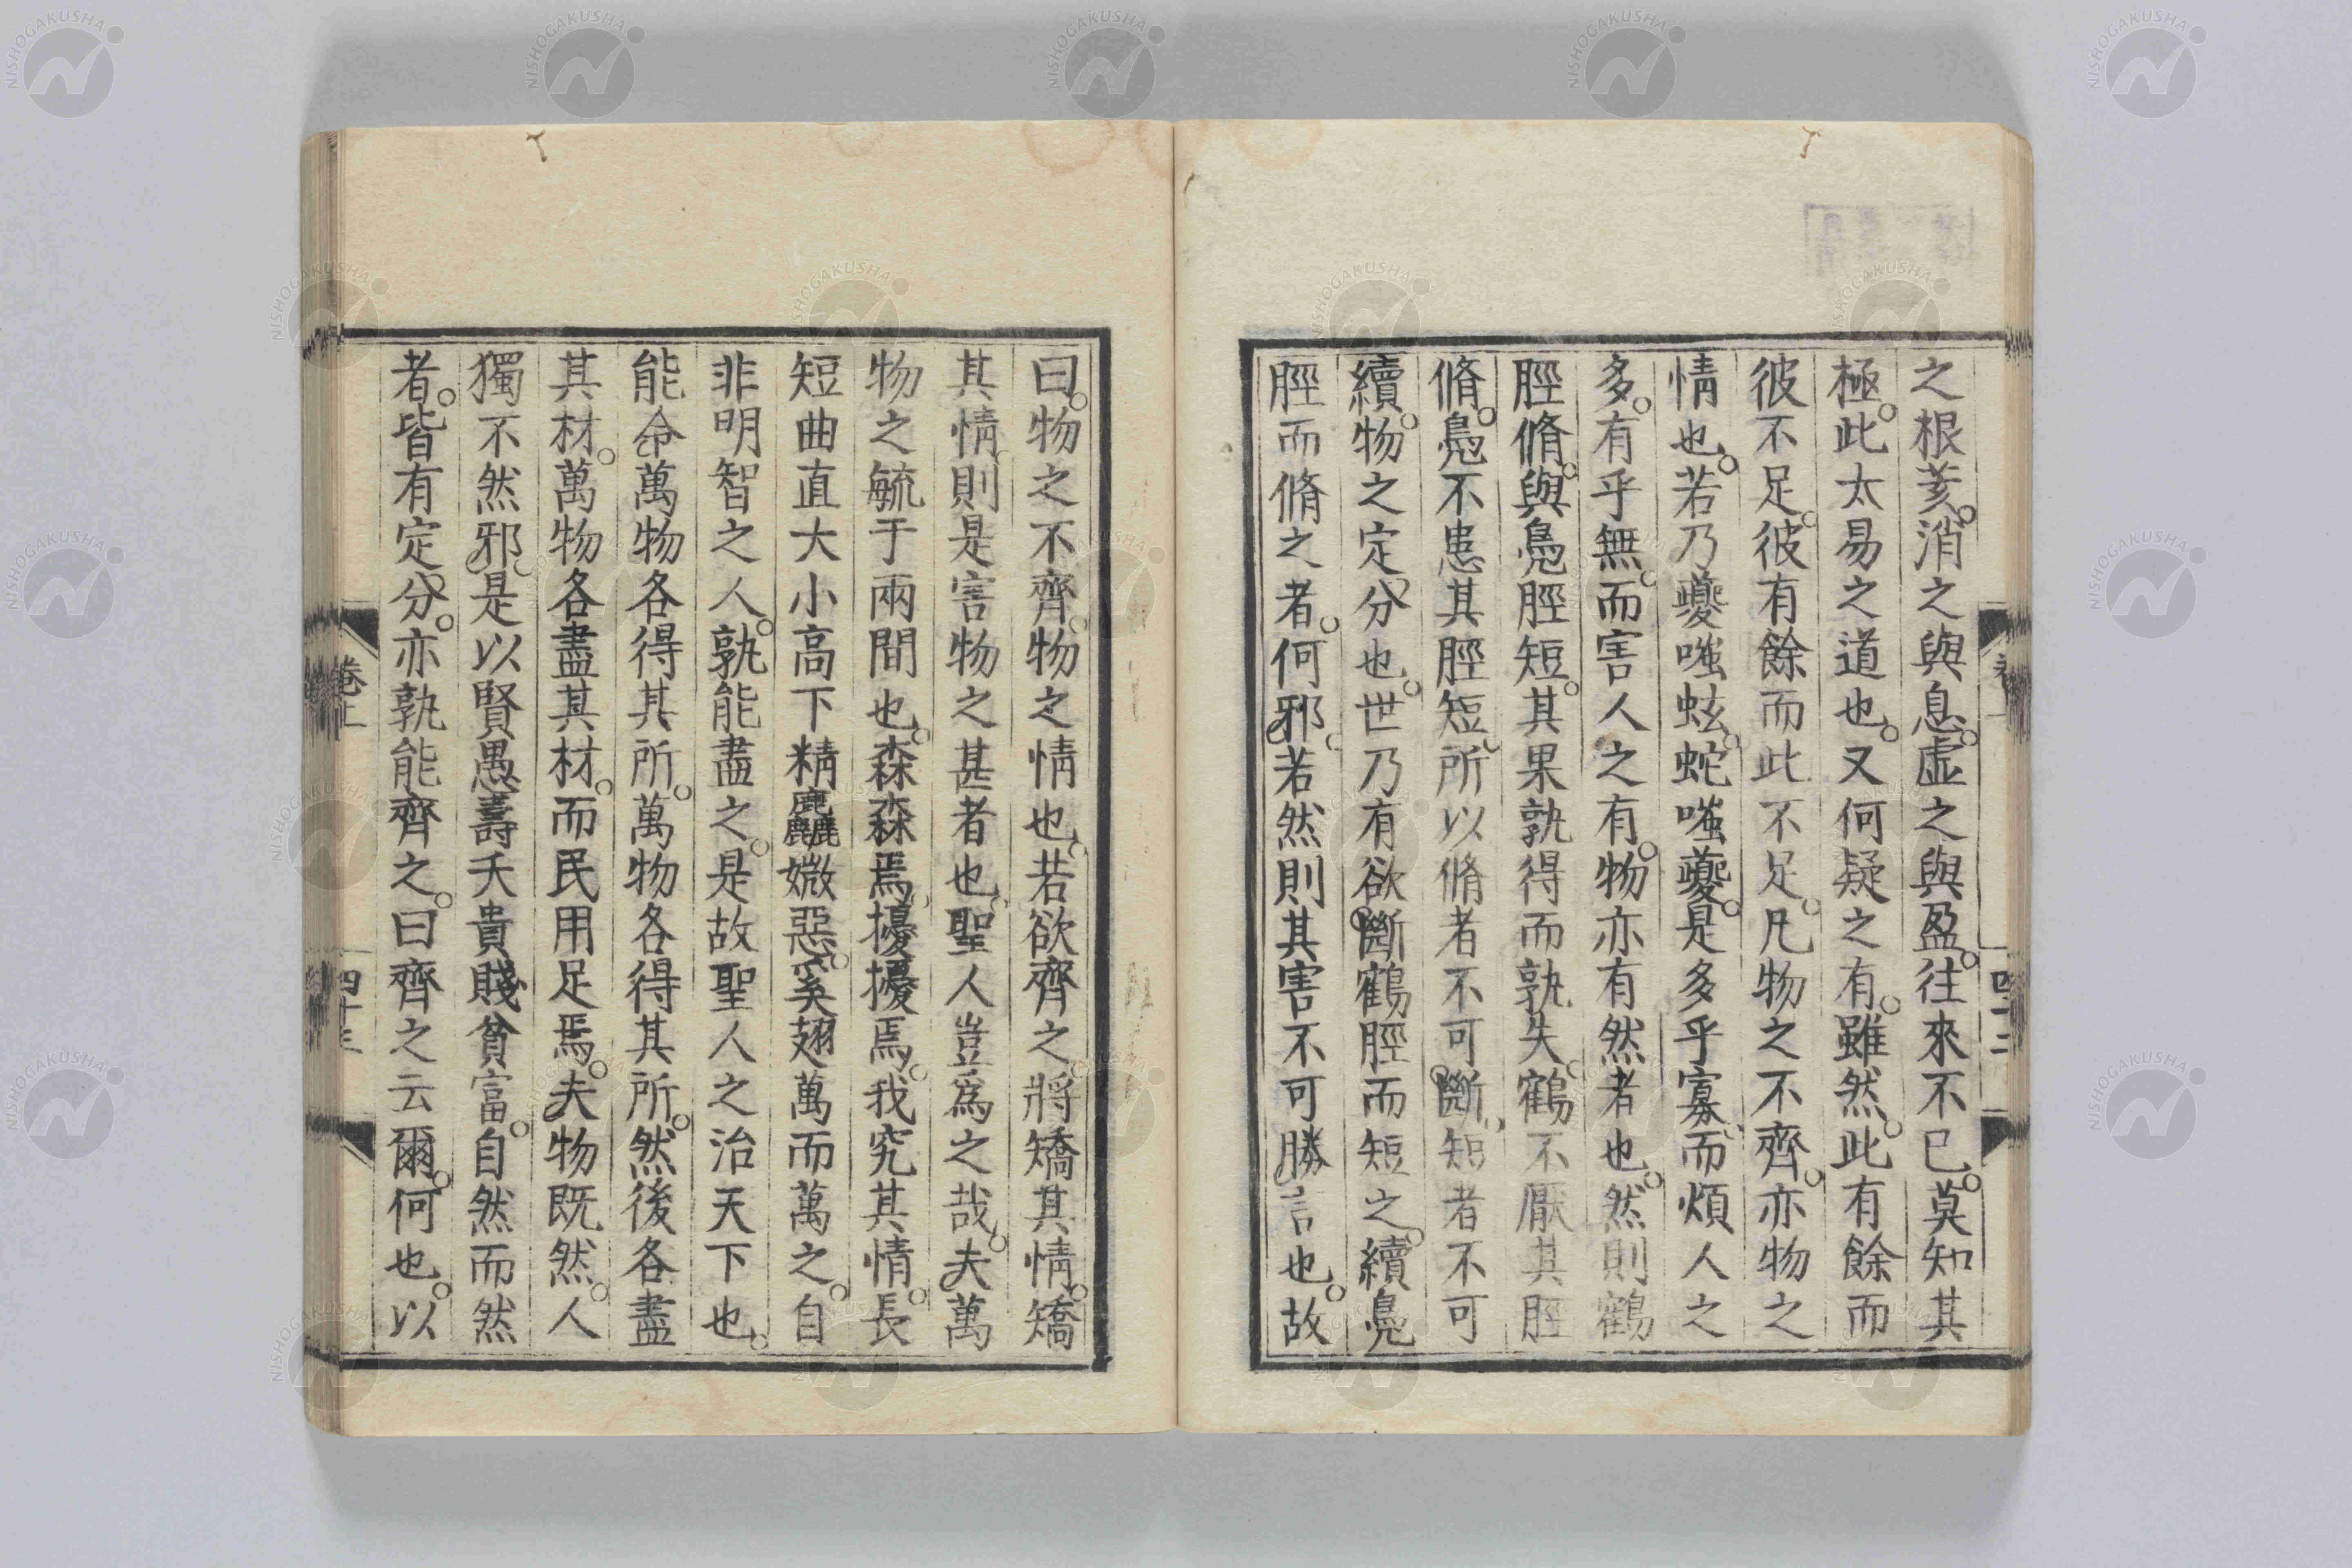 之根荄。消之與息。虛之與盈。往來不已。莫知其
極。此太易之道也。又何疑之有。雖然。此有餘而
彼不足。彼有餘而此不足。凡物之不齊。亦物之
情也。若乃夔嗤蚿。蛇嗤夔。是多乎寡。而煩人之
多。有乎無。而害人之有。物亦有然者也。然則鶴
脛脩。與鳧脛短。其果孰得而孰失。鶴不厭其脛
脩。鳧不患其脛短。所以脩者不可斷。短者不可
續。物之定分也。世乃有欲斷鶴脛而短之。續鳧
脛而脩之者。何邪。若然則其害不可勝言也。故
曰。物之不齊。物之情也。若欲齊之。將矯其情。矯
其情。則是害物之甚者也。聖人豈爲之哉。夫萬
物之毓于兩間也。森森焉。擾擾焉。我究其情。長
短曲直大小高下精麤媺惡。奚翅萬而萬之。自
非明智之人。孰能盡之。是故聖人之治天下也。
能命萬物各得其所。萬物各得其所。然後各盡
其材。萬物各盡其材。而民用足焉。夫物既然。人
獨不然邪。是以賢愚壽夭貴賤貧富。自然而然
者。皆有定分。亦孰能齊之。曰齊之云爾。何也。以
卷上
四十三
NISHOGAKUSHA